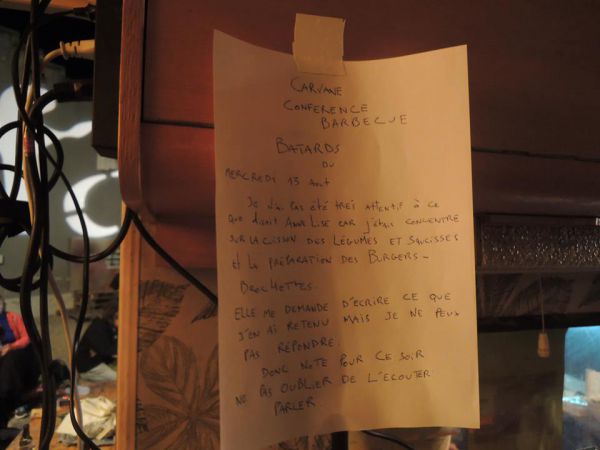 CARVANE
CONFERENCE
BARBECUE
BATARDS
DU
MERCREDI 13 Août
Je n'ai pas été très attentif à ce
que disait Anne Lise car j'étais concentré
sur la cuisson des légumes et saucisses
et la préparation des burgers -
Brochettes.
Elle me demande d'écrire ce que
j'en ai retenu mais je ne peux
pas répondre.
Donc note pour ce soir
ne pas oublier de l'écouter
parler